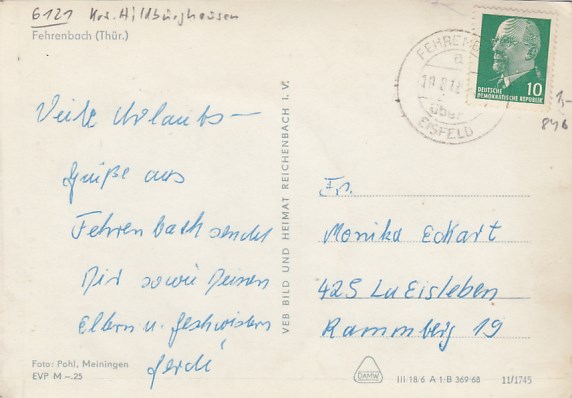 6121 Krs. Hildburghausen
Fehrenbach (Thür.)
Viele Urlaubs-
grüße aus
Fehrenbach sendet
Dir sowie Deinen
Eltern u. Geschwistern
Gerdi
Foto: Pohl, Meiningen
EVP M –.25
VEB BILD UND HEIMAT REICHENBACH I. V.
a
über
EISFELD
DEUTSCHE
DEMOKRATISCHE REPUBLIK
10
846
Fr.
Monika Eckart
425 Lu Eisleben
Rammberg 19
DAMW
III 18 6 A 1 B 369 68
11/1745